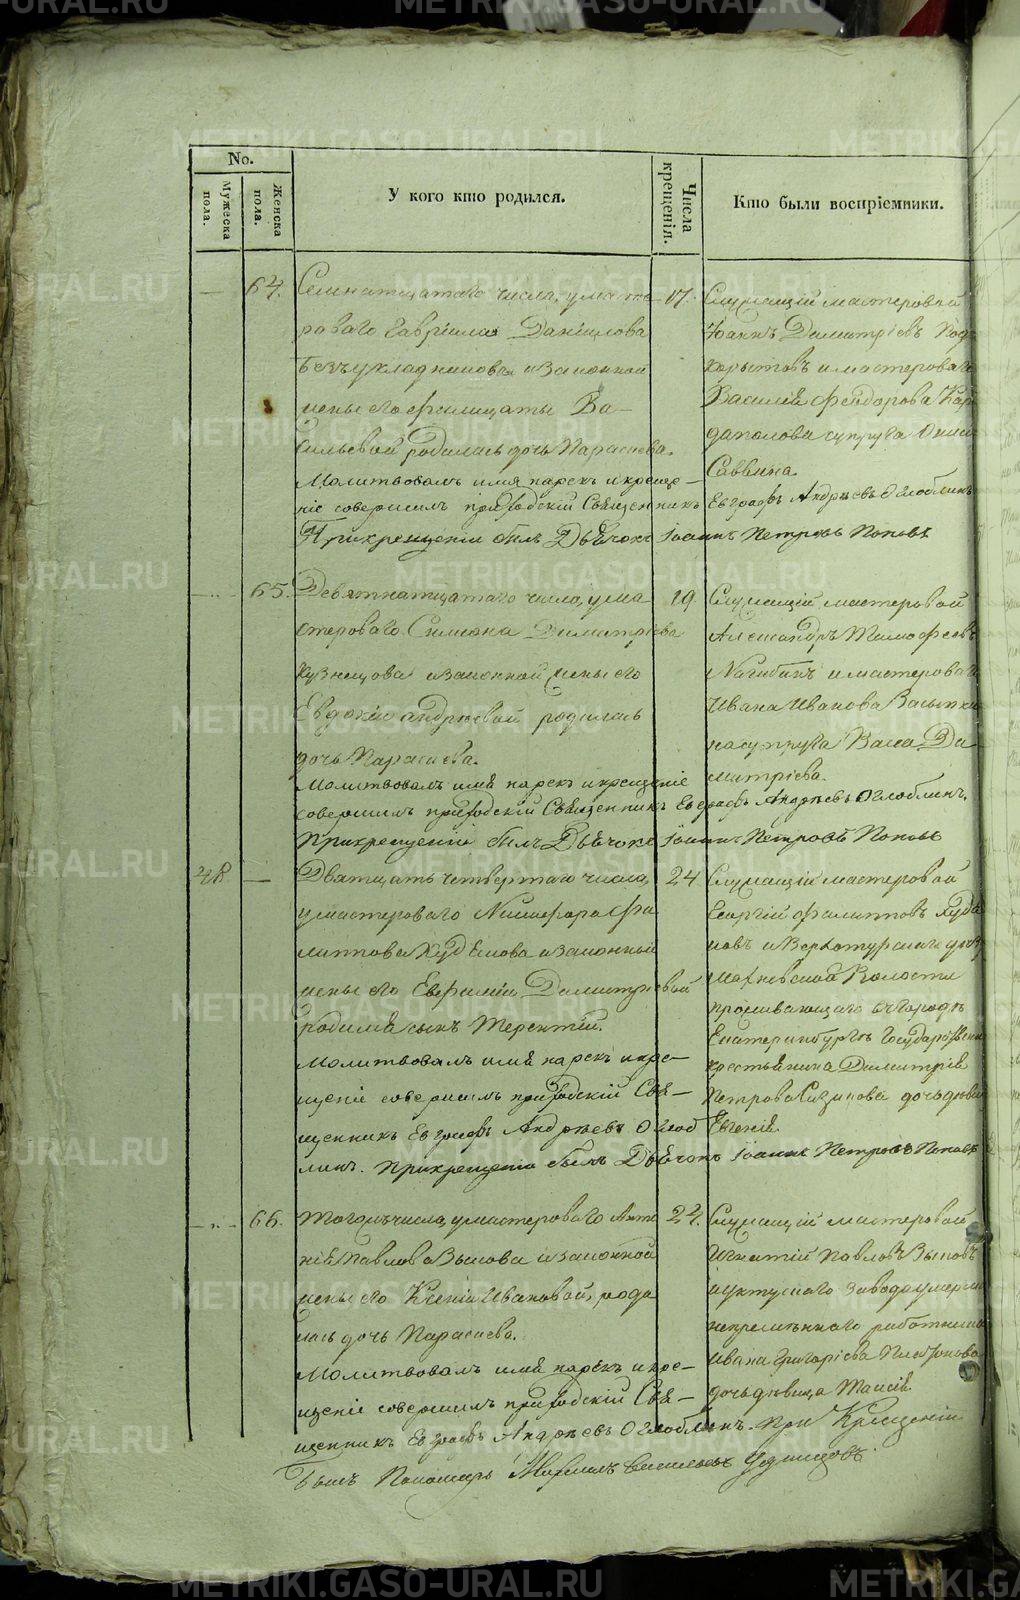 No.
Мужеска пола.
Женска пола.
У кого кто родился.
Числа крещенія.
Кто были воспріемники.
64.
Семнатцатаго числа, умасте-
роваго Гавріила Данилова
Безъукладникова изаконной
жены его Филицаты Ва-
сильевой родилась дочь Параскева.
Молитвовалъ имя нарекъ икреще-
ніе совершилъ приходскій Священникъ Евграфъ Андреевъ Оглоблинъ
Прикрещеніи былъ Дьячокъ Іоаннъ Петровъ Поповъ
17.
Служащій мастеровой
Іоаннъ Димитріевъ Под-
корытовъ имастероваго
Василія Фейдорова Кар-
даполова супруга
Саввина.
65.
Девятнатцатаго числа, ума-
стероваго Симеона Димитріева
Кузнецова изаконной жены его
Евдокіи андреевой родилась
дочь Параскева.
Молитвовалъ имя нарекъ икрещеніе
совершилъ приходскій Священникъ Евграфъ Андреевъ Оглоблинъ.
Прикрещеніи былъ Дьячокъ Іоаннъ Петровъ Поповъ
19.
Служащій мастеровой
Александръ Тимофеевъ
Нагибинъ имастероваго
Ивана Иванова
супруга Васса Ди-
митріева.
48
Двятцать четвертаго числа,
умастероваго Никифора Фи-
липпова Худякова изаконной
жены его Евфиміи Димитріевой
родился сынъ Терентій.
Молитвовалъ имя нарекъ икре-
щеніе совершилъ приходскій Свя-
щенникъ Евграфъ Андреевъ Оглоб
линъ. Прикрещеніи былъ Дьячокъ Іоаннъ Петровъ Поповъ
24
Служащій мастеровой
Георгій Филипповъ Худя-
ковъ и Верхотурскаго
Волости
проживающаго въгороде
Екатеринбурге Государственн
крестьянина Димитрія
Петрова дочь девица
Евгенія
66.
Тогожъ числа, умастероваго
Павлова Зыкова изаконной
жены его Ксеніи Ивановой, роди
лась дочь Параскева.
Молитвовалъ имя нарекъ икре-
щеніе совершилъ приходскій Свя-
щенникъ Евграфъ Андреевъ Оглоблинъ. при Крещеніи
Былъ Пономарь Васильевъ
24.
Служащій мастеровой
Игнатій Павловъ Зыковъ
иуктускаго завода умерш
непременнаго работника
Ивана Григоріева
дочь девица Таисія.
METRIKI.GASO-URAL.RU